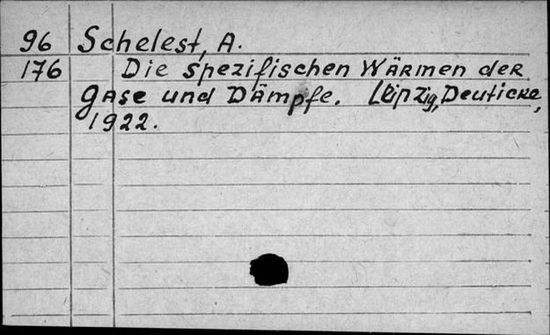 96 Schelest, A.
176 Die spezifischen Wärmen der
Gase und Dämpfe. Leipzig, Deuticke,
1922.